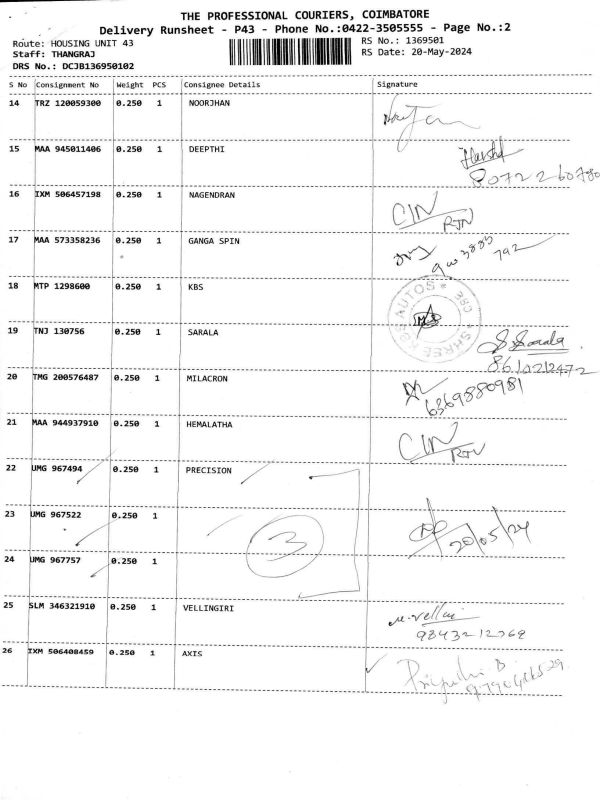 THE PROFESSIONAL COURIERS, COIMBATORE
Delivery Runsheet - P43 - Phone No.:0422-3505555 - Page No.:2
Route: HOUSING UNIT 43 RS No.: 1369501
Staff: THANGRAJ RS Date: 20-May-2024
DRS No.: DCJB136950102
S No Consignment No Weight PCS Consignee Details Signature
14 TRZ 120059300 0.250 1 NOORJHAN
15 MAA 945011406 0.250 1 DEEPTHI
80722 60780
16 IXM 506457198 0.250 1 NAGENDRAN CIN
RTN
17 MAA 573358236 0.250 1 GANGA SPIN
18 MTP 1298600 0.250 1 KBS
AUTOS * 380
SHREE
19 TNJ 130756 0.250 1 SARALA S. Sarala
8610212472
20 TMG 200576487 0.250 1 MILACRON
6369880981
21 MAA 944937910 0.250 1 HEMALATHA CIN
RTN
22 UMG 967494 0.250 1 PRECISION
23 UMG 967522 0.250 1
3 20/05/24
24 UMG 967757 0.250 1
25 SLM 346321910 0.250 1 VELLINGIRI
26 IXM 506408459 0.250 1 AXIS